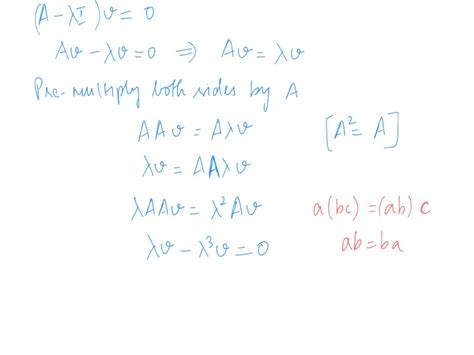 (A-λI)v = 0
Av - λv = 0 ⇒ Av = λv
Pre-multiply both sides by A
AAv = Aλv [A² = A]
λv = AAλv
λAAv = λ²Av a(bc) = (ab) c
λv - λ³v = 0 ab = ba